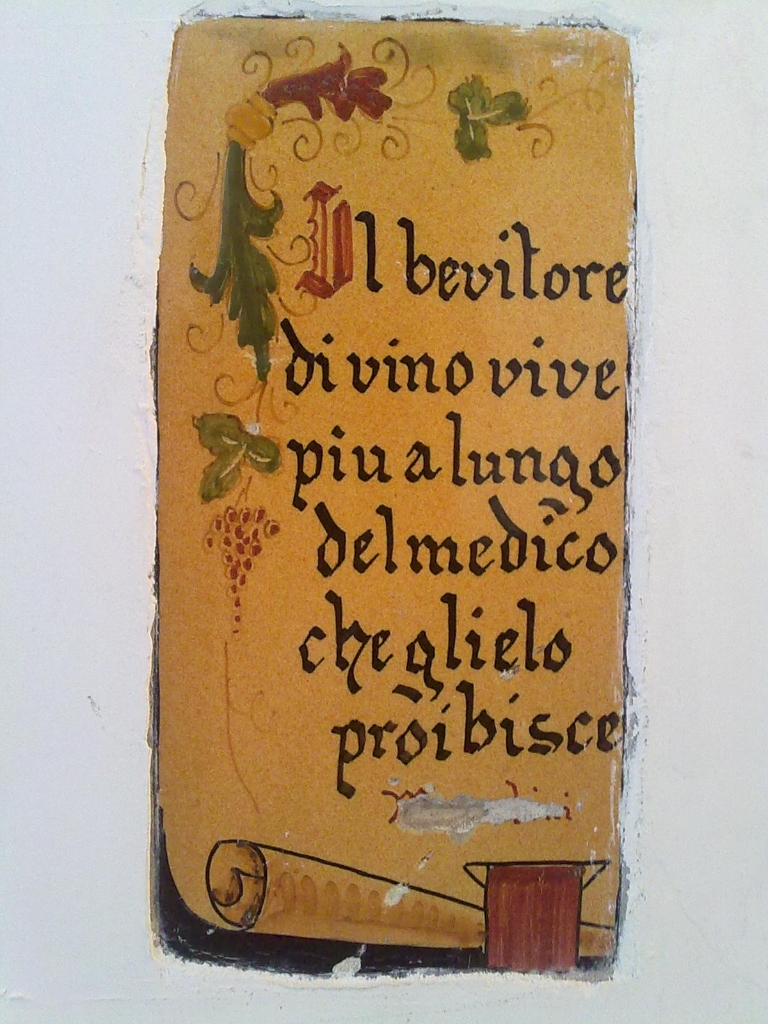 Il bevitore
di vino vive
piu a lungo
del medico
che glielo
proibisce